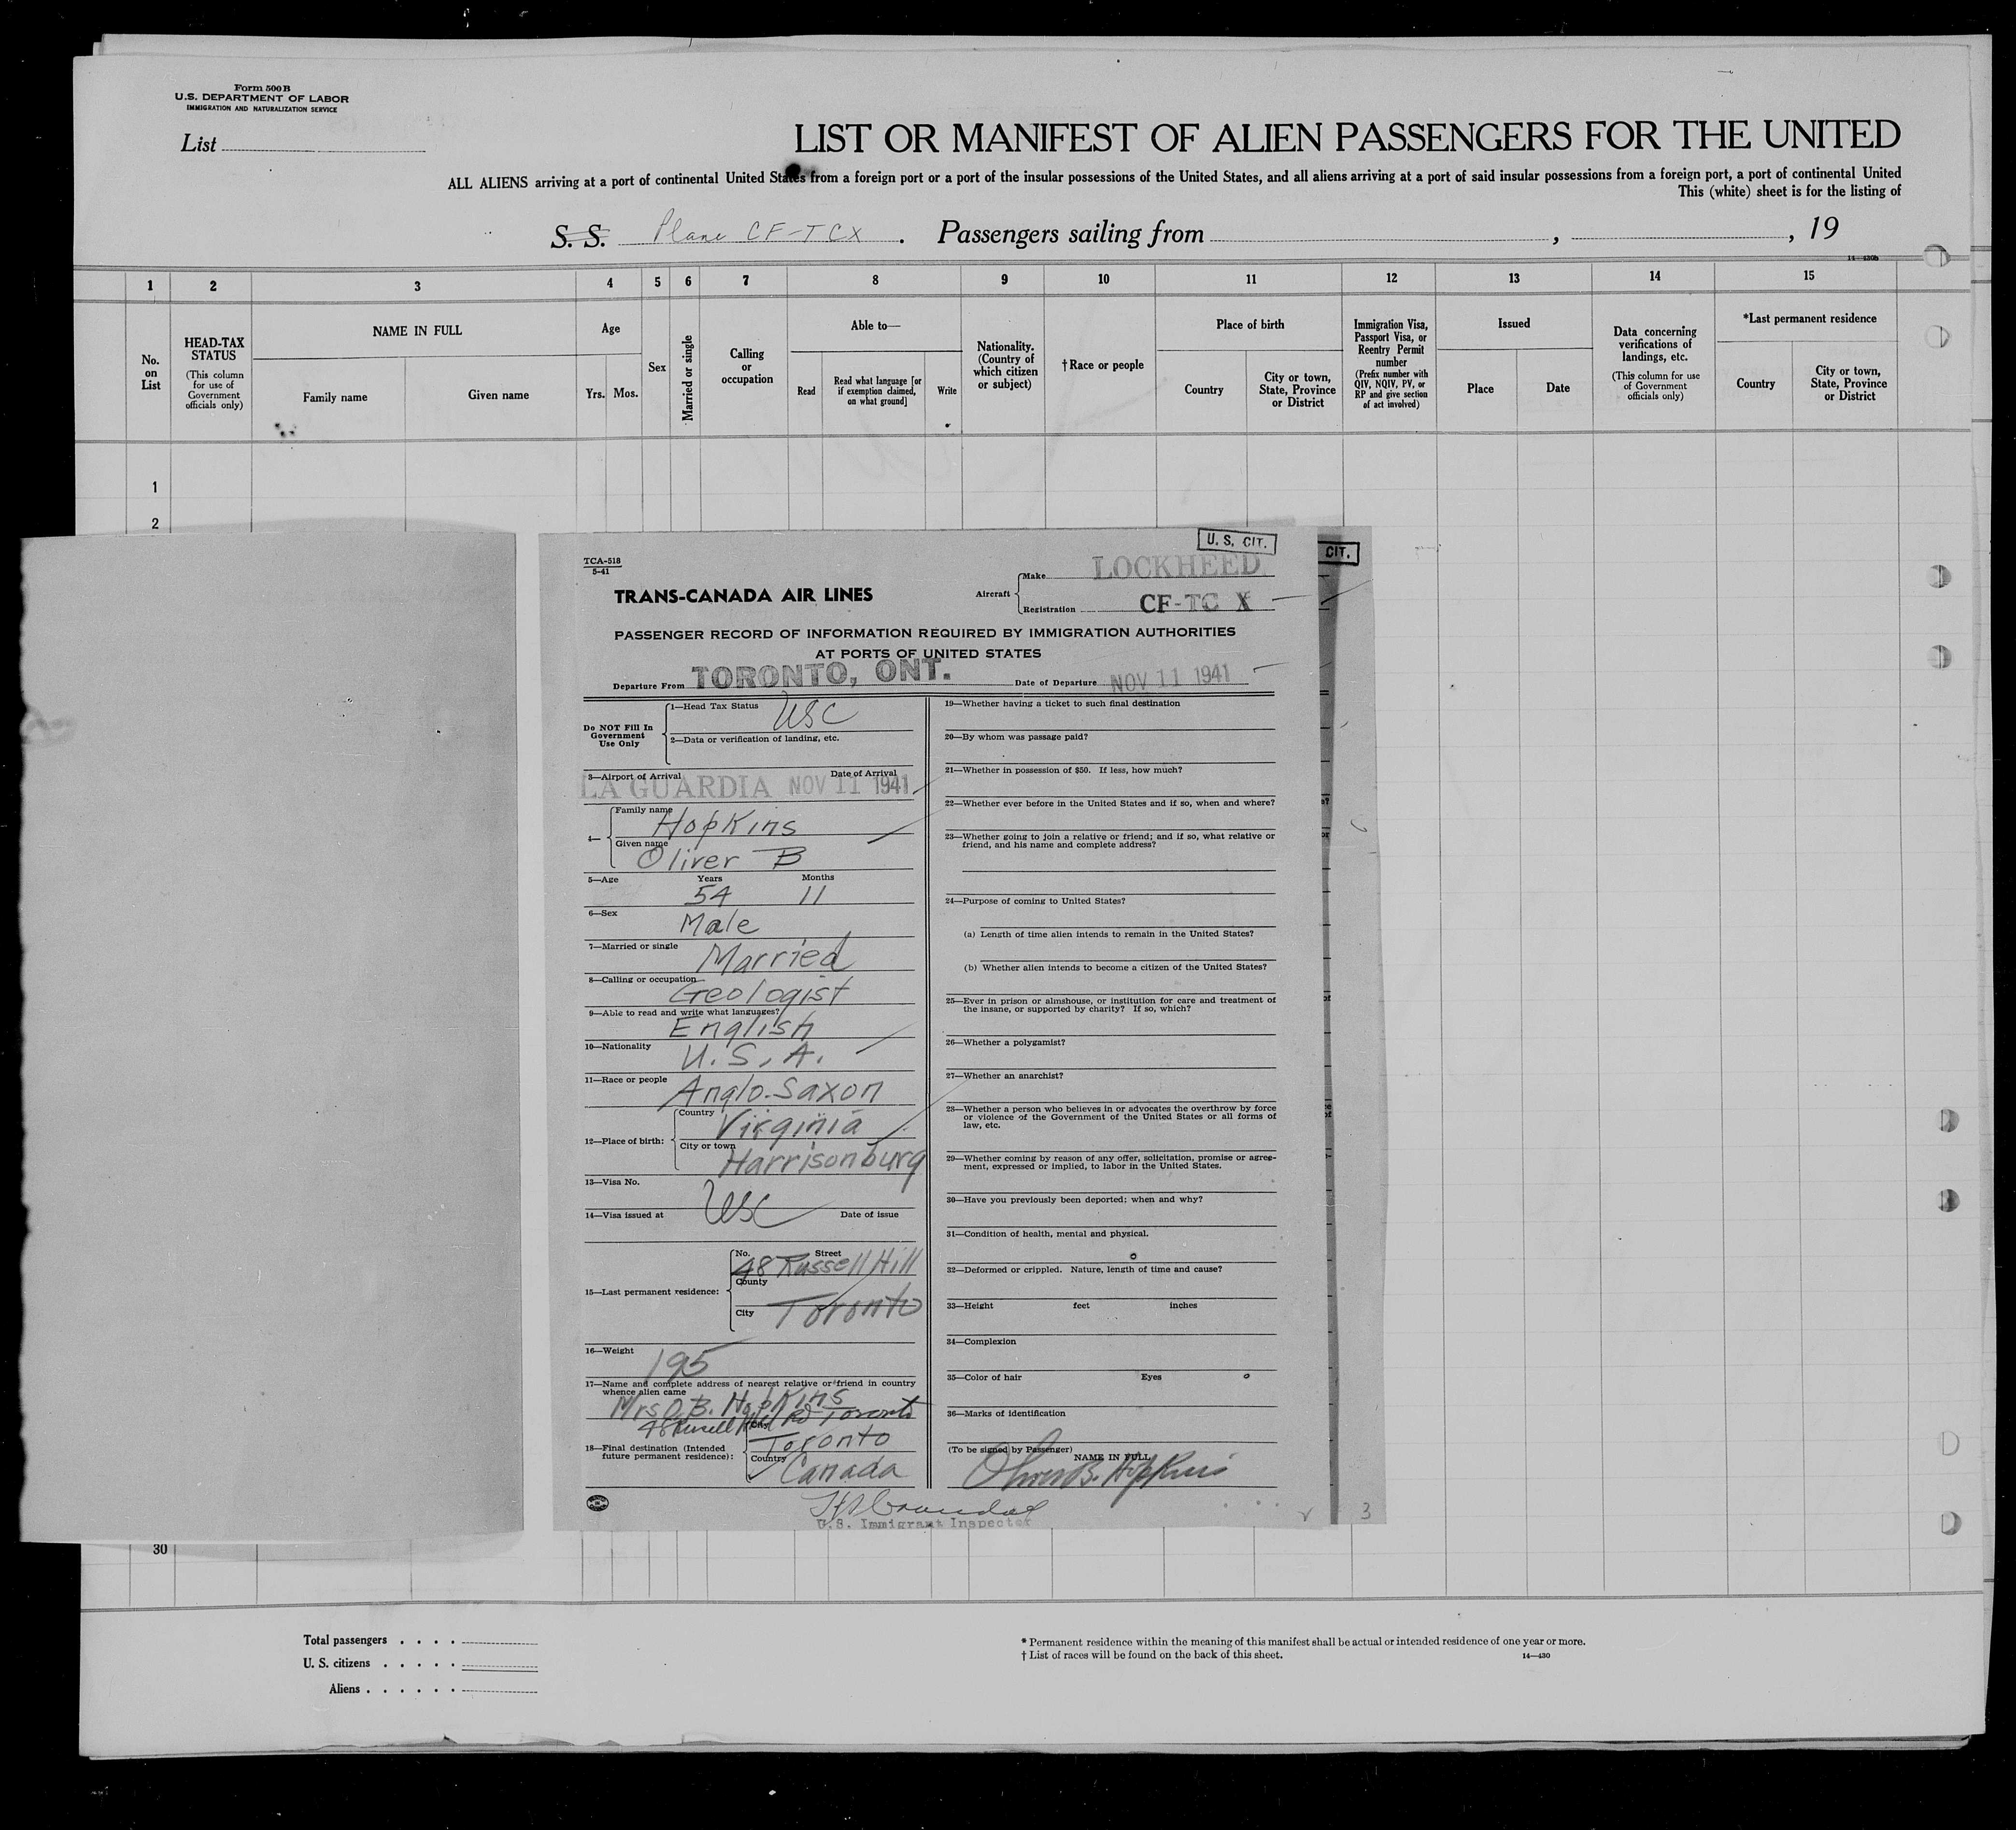 Form 500B
U.S. DEPARTMENT OF LABOR
IMMIGRATION AND NATURALIZATION SERVICE
List
LIST OR MANIFEST OF ALIEN PASSENGERS FOR THE UNITED
ALL ALIENS arriving at a port of continental United States from a foreign port or a port of the insular possessions of the United States, and all aliens arriving at a port of said insular possessions from a foreign port, a port of continental United
This (white) sheet is for the listing of
S. S. Plane CF-TCX . Passengers sailing from , , 19
14—430b
1 2 3 4 5 6 7 8 9 10 11 12 13 14 15
No. on List
HEAD-TAX STATUS
(This column for use of Government officials only)
NAME IN FULL
Family name Given name
Age
Yrs. Mos.
Sex
Married or single
Calling or occupation
Able to—
Read
Read what language [or if exemption claimed, on what ground]
Write
Nationality. (Country of which citizen or subject)
† Race or people
Place of birth
Country
City or town, State, Province or District
Immigration Visa, Passport Visa, or Reentry Permit number
(Prefix number with QIV, NQIV, PV, or RP and give section of act involved)
Issued
Place Date
Data concerning verifications of landings, etc.
(This column for use of Government officials only)
*Last permanent residence
Country
City or town, State, Province or District
1
2
U. S. CIT.
CIT.
TCA-518
5-41
TRANS-CANADA AIR LINES
Aircraft
Make LOCKHEED
Registration CF-TC X
PASSENGER RECORD OF INFORMATION REQUIRED BY IMMIGRATION AUTHORITIES
AT PORTS OF UNITED STATES
Departure From TORONTO, ONT. Date of Departure NOV 11 1941
Do NOT Fill In
Government
Use Only
1—Head Tax Status USC
2—Data or verification of landing, etc.
3—Airport of Arrival Date of Arrival
LA GUARDIA NOV 11 1941
4— Family name Hopkins
Given name Oliver B
5—Age Years Months
54 11
6—Sex Male
7—Married or single Married
8—Calling or occupation Geologist
9—Able to read and write what languages?
English
10—Nationality U.S.A.
11—Race or people Anglo-Saxon
12—Place of birth: Country Virginia
City or town Harrisonburg
13—Visa No. USC
14—Visa issued at Date of issue
15—Last permanent residence:
No. Street
48 Russell Hill
County
City Toronto
16—Weight 195
17—Name and complete address of nearest relative or friend in country
whence alien came
Mrs O.B. Hopkins
48 Russell Hill Rd Toronto
18—Final destination (Intended
future permanent residence):
City Toronto
Country Canada
19—Whether having a ticket to such final destination
20—By whom was passage paid?
21—Whether in possession of $50. If less, how much?
22—Whether ever before in the United States and if so, when and where?
23—Whether going to join a relative or friend; and if so, what relative or
friend, and his name and complete address?
24—Purpose of coming to United States?
(a) Length of time alien intends to remain in the United States?
(b) Whether alien intends to become a citizen of the United States?
25—Ever in prison or almshouse, or institution for care and treatment of
the insane, or supported by charity? If so, which?
26—Whether a polygamist?
27—Whether an anarchist?
28—Whether a person who believes in or advocates the overthrow by force
or violence of the Government of the United States or all forms of
law, etc.
29—Whether coming by reason of any offer, solicitation, promise or agree-
ment, expressed or implied, to labor in the United States.
30—Have you previously been deported; when and why?
31—Condition of health, mental and physical.
32—Deformed or crippled. Nature, length of time and cause?
33—Height feet inches
34—Complexion
35—Color of hair Eyes
36—Marks of identification
(To be signed by Passenger)
NAME IN FULL
Oliver B. Hopkins
U.S. Immigrant Inspector
3
30
Total passengers . . . .
U. S. citizens . . . . .
Aliens . . . . . .
* Permanent residence within the meaning of this manifest shall be actual or intended residence of one year or more.
† List of races will be found on the back of this sheet.
14—430